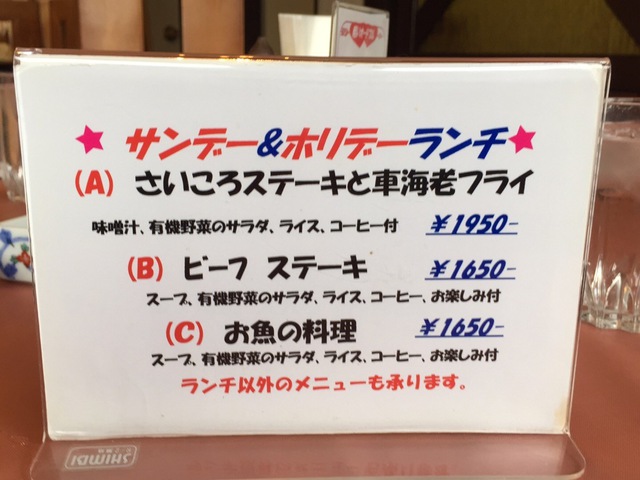 ★ サンデー&ホリデーランチ★
(A) さいころステーキと車海老フライ
味噌汁、有機野菜のサラダ、ライス、コーヒー付 ¥1950-
(B) ビーフ ステーキ ¥1650-
スープ、有機野菜のサラダ、ライス、コーヒー、お楽しみ付
(C) お魚の料理 ¥1650-
スープ、有機野菜のサラダ、ライス、コーヒー、お楽しみ付
ランチ以外のメニューも承ります。
SHIMBI